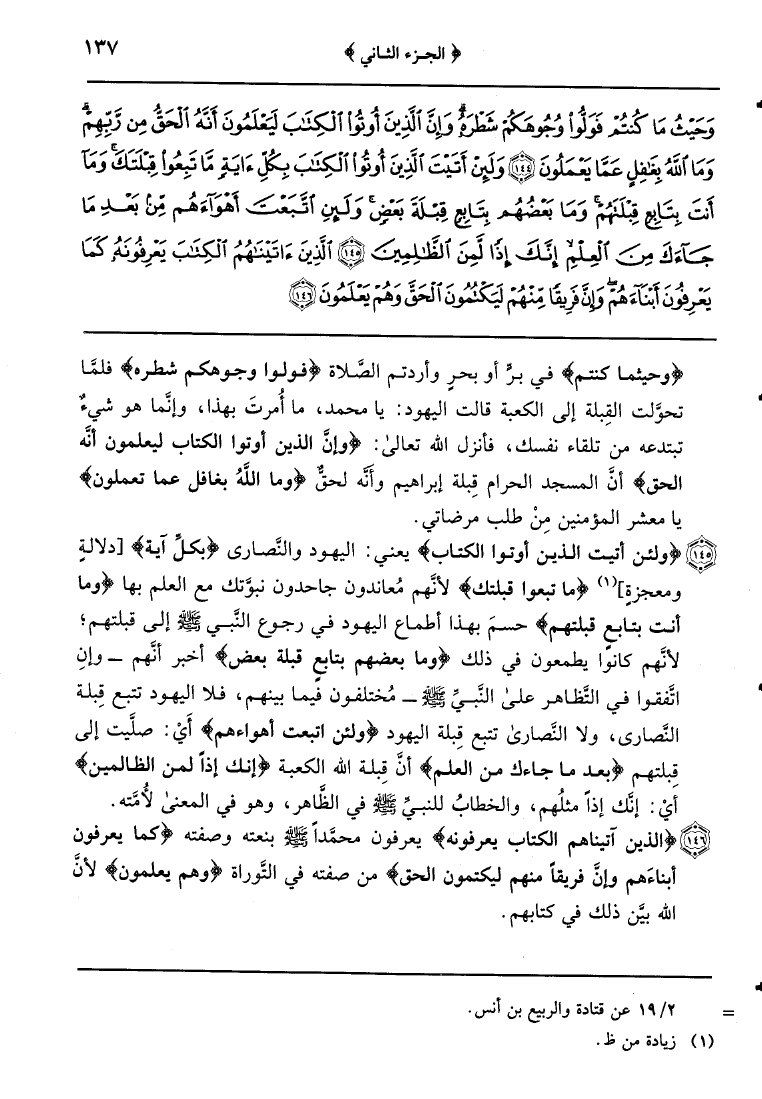 ١٣٧
﴿ الجزء الثاني ﴾
وَحَيْثُ مَا كُنتُمْ فَوَلُّوا۟ وُجُوهَكُمْ شَطْرَهُۥ ۗ وَإِنَّ ٱلَّذِينَ أُوتُوا۟ ٱلْكِتَٰبَ لَيَعْلَمُونَ أَنَّهُ ٱلْحَقُّ مِن رَّبِّهِمْ ۗ
وَمَا ٱللَّهُ بِغَٰفِلٍ عَمَّا يَعْمَلُونَ ١٤٤ وَلَئِنْ أَتَيْتَ ٱلَّذِينَ أُوتُوا۟ ٱلْكِتَٰبَ بِكُلِّ ءَايَةٍ مَّا تَبِعُوا۟ قِبْلَتَكَ ۚ وَمَآ
أَنتَ بِتَابِعٍ قِبْلَتَهُمْ ۚ وَمَا بَعْضُهُم بِتَابِعٍ قِبْلَةَ بَعْضٍ ۚ وَلَئِنِ ٱتَّبَعْتَ أَهْوَآءَهُم مِّنۢ بَعْدِ مَا
جَآءَكَ مِنَ ٱلْعِلْمِ ۙ إِنَّكَ إِذًا لَّمِنَ ٱلظَّٰلِمِينَ ١٤٥ ٱلَّذِينَ ءَاتَيْنَٰهُمُ ٱلْكِتَٰبَ يَعْرِفُونَهُۥ كَمَا
يَعْرِفُونَ أَبْنَآءَهُمْ ۖ وَإِنَّ فَرِيقًا مِّنْهُمْ لَيَكْتُمُونَ ٱلْحَقَّ وَهُمْ يَعْلَمُونَ ١٤٦
﴿وحيثما كنتم﴾ في برٍّ أو بحرٍ وأردتم الصَّلاة ﴿فولوا وجوهكم شطره﴾ فلمَّا
تحوَّلت القِبلة إلى الكعبة قالت اليهود: يا محمد، ما أُمرتَ بهذا، وإنَّما هو شيءٌ
تبتدعه من تلقاء نفسك، فأنزل الله تعالىٰ: ﴿وإنَّ الذين أوتوا الكتاب ليعلمون أنَّه
الحق﴾ أنَّ المسجد الحرام قِبلة إبراهيم وأنَّه لحقٌّ ﴿وما اللَّهُ بغافل عما تعملون﴾
يا معشر المؤمنين مِنْ طلب مرضاتي.
١٤٥ ﴿ولئن أتيت الذين أوتوا الكتاب﴾ يعني: اليهود والنَّصارى ﴿بكلِّ آية﴾ [دلالةٍ
ومعجزةٍ](١) ﴿ما تبعوا قبلتك﴾ لأنَّهم مُعاندون جاحدون نبوَّتك مع العلم بها ﴿وما
أنت بتابعٍ قبلتهم﴾ حسمَ بهذا أطماع اليهود في رجوع النَّبي ﷺ إلى قبلتهم؛
لأنَّهم كانوا يطمعون في ذلك ﴿وما بعضهم بتابعٍ قبلة بعض﴾ أخبر أنَّهم ـ وإنِ
اتَّفقوا في التَّظاهر علىٰ النَّبيِّ ﷺ ـ مُختلفون فيما بينهم، فلا اليهود تتبع قِبلة
النَّصارى، ولا النَّصارىٰ تتبع قِبلة اليهود ﴿ولئن اتبعت أهواءهم﴾ أيْ: صلَّيت إلى
قِبلتهم ﴿بعد ما جاءك من العلم﴾ أنَّ قِبلة الله الكعبة ﴿إنك إذاً لمن الظالمين﴾
أيْ: إنَّك إذاً مثلُهم، والخطابُ للنبيِّ ﷺ في الظَّاهر، وهو في المعنىٰ لأُمَّته.
١٤٦ ﴿الذين آتيناهم الكتاب يعرفونه﴾ يعرفون محمَّداً ﷺ بنعته وصفته ﴿كما يعرفون
أبناءَهم وإنَّ فريقاً منهم ليكتمون الحق﴾ من صفته في التَّوراة ﴿وهم يعلمون﴾ لأنَّ
الله بيَّن ذلك في كتابهم.
= ١٩/٢ عن قتادة والربيع بن أنس.
(١) زيادة من ظ.